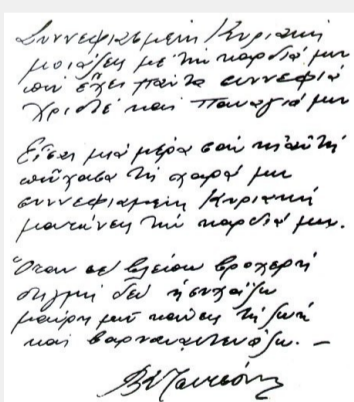 Συννεφιασμένη Κυριακή
μοιάζεις με την καρδιά μου
που έχει πάντα συννεφιά
Χριστέ και Παναγιά μου
Είσαι μιά μέρα σαν κι αυτή
πούχασα τη χαρά μου
συννεφιασμένη Κυριακή
ματώνεις την καρδιά μου.
Όταν σε βλέπω βροχερή
στιγμή δεν ησυχάζω
μαύρη μού κάνεις τη ζωή
και βαρναστενάζω. –
Β Τσιτσάνης